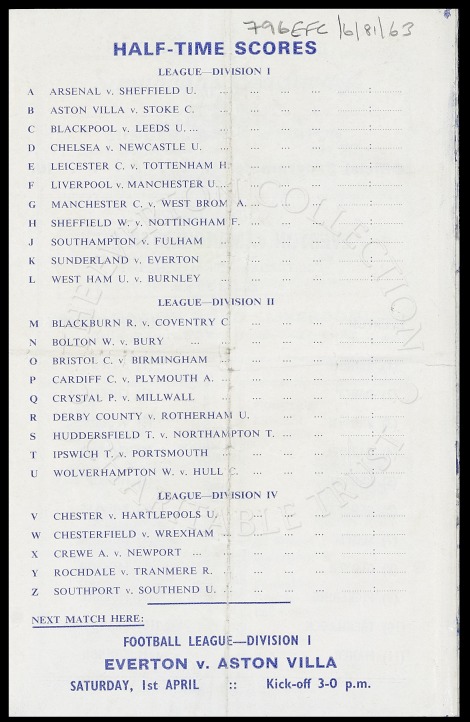 796EFC/6/81/63
HALF-TIME SCORES
LEAGUE—DIVISION I
A ARSENAL v. SHEFFIELD U. ... ... ... ... :
B ASTON VILLA v. STOKE C. ... ... ... ... :
C BLACKPOOL v. LEEDS U. ... ... ... ... :
D CHELSEA v. NEWCASTLE U. ... ... ... ... :
E LEICESTER C. v. TOTTENHAM H. ... ... ... :
F LIVERPOOL v. MANCHESTER U. ... ... ... ... :
G MANCHESTER C. v. WEST BROM A. ... ... ... :
H SHEFFIELD W. v. NOTTINGHAM F. ... ... ... :
J SOUTHAMPTON v. FULHAM ... ... ... ... :
K SUNDERLAND v. EVERTON ... ... ... ... :
L WEST HAM U. v. BURNLEY ... ... ... ... :
LEAGUE—DIVISION II
M BLACKBURN R. v. COVENTRY C. ... ... ... :
N BOLTON W. v. BURY ... ... ... ... ... :
O BRISTOL C. v. BIRMINGHAM ... ... ... ... :
P CARDIFF C. v. PLYMOUTH A. ... ... ... ... :
Q CRYSTAL P. v. MILLWALL ... ... ... ... :
R DERBY COUNTY v. ROTHERHAM U. ... ... :
S HUDDERSFIELD T. v. NORTHAMPTON T. ... ... :
T IPSWICH T. v. PORTSMOUTH ... ... ... ... :
U WOLVERHAMPTON W. v. HULL C. ... ... ... :
LEAGUE—DIVISION IV
V CHESTER v. HARTLEPOOLS U. ... ... ... :
W CHESTERFIELD v. WREXHAM ... ... ... ... :
X CREWE A. v. NEWPORT ... ... ... ... ... :
Y ROCHDALE v. TRANMERE R. ... ... ... ... :
Z SOUTHPORT v. SOUTHEND U. ... ... ... ... :
NEXT MATCH HERE:
FOOTBALL LEAGUE—DIVISION I
EVERTON v. ASTON VILLA
SATURDAY, 1st APRIL :: Kick-off 3-0 p.m.
COLLECTION
CHARITABLE TRUST